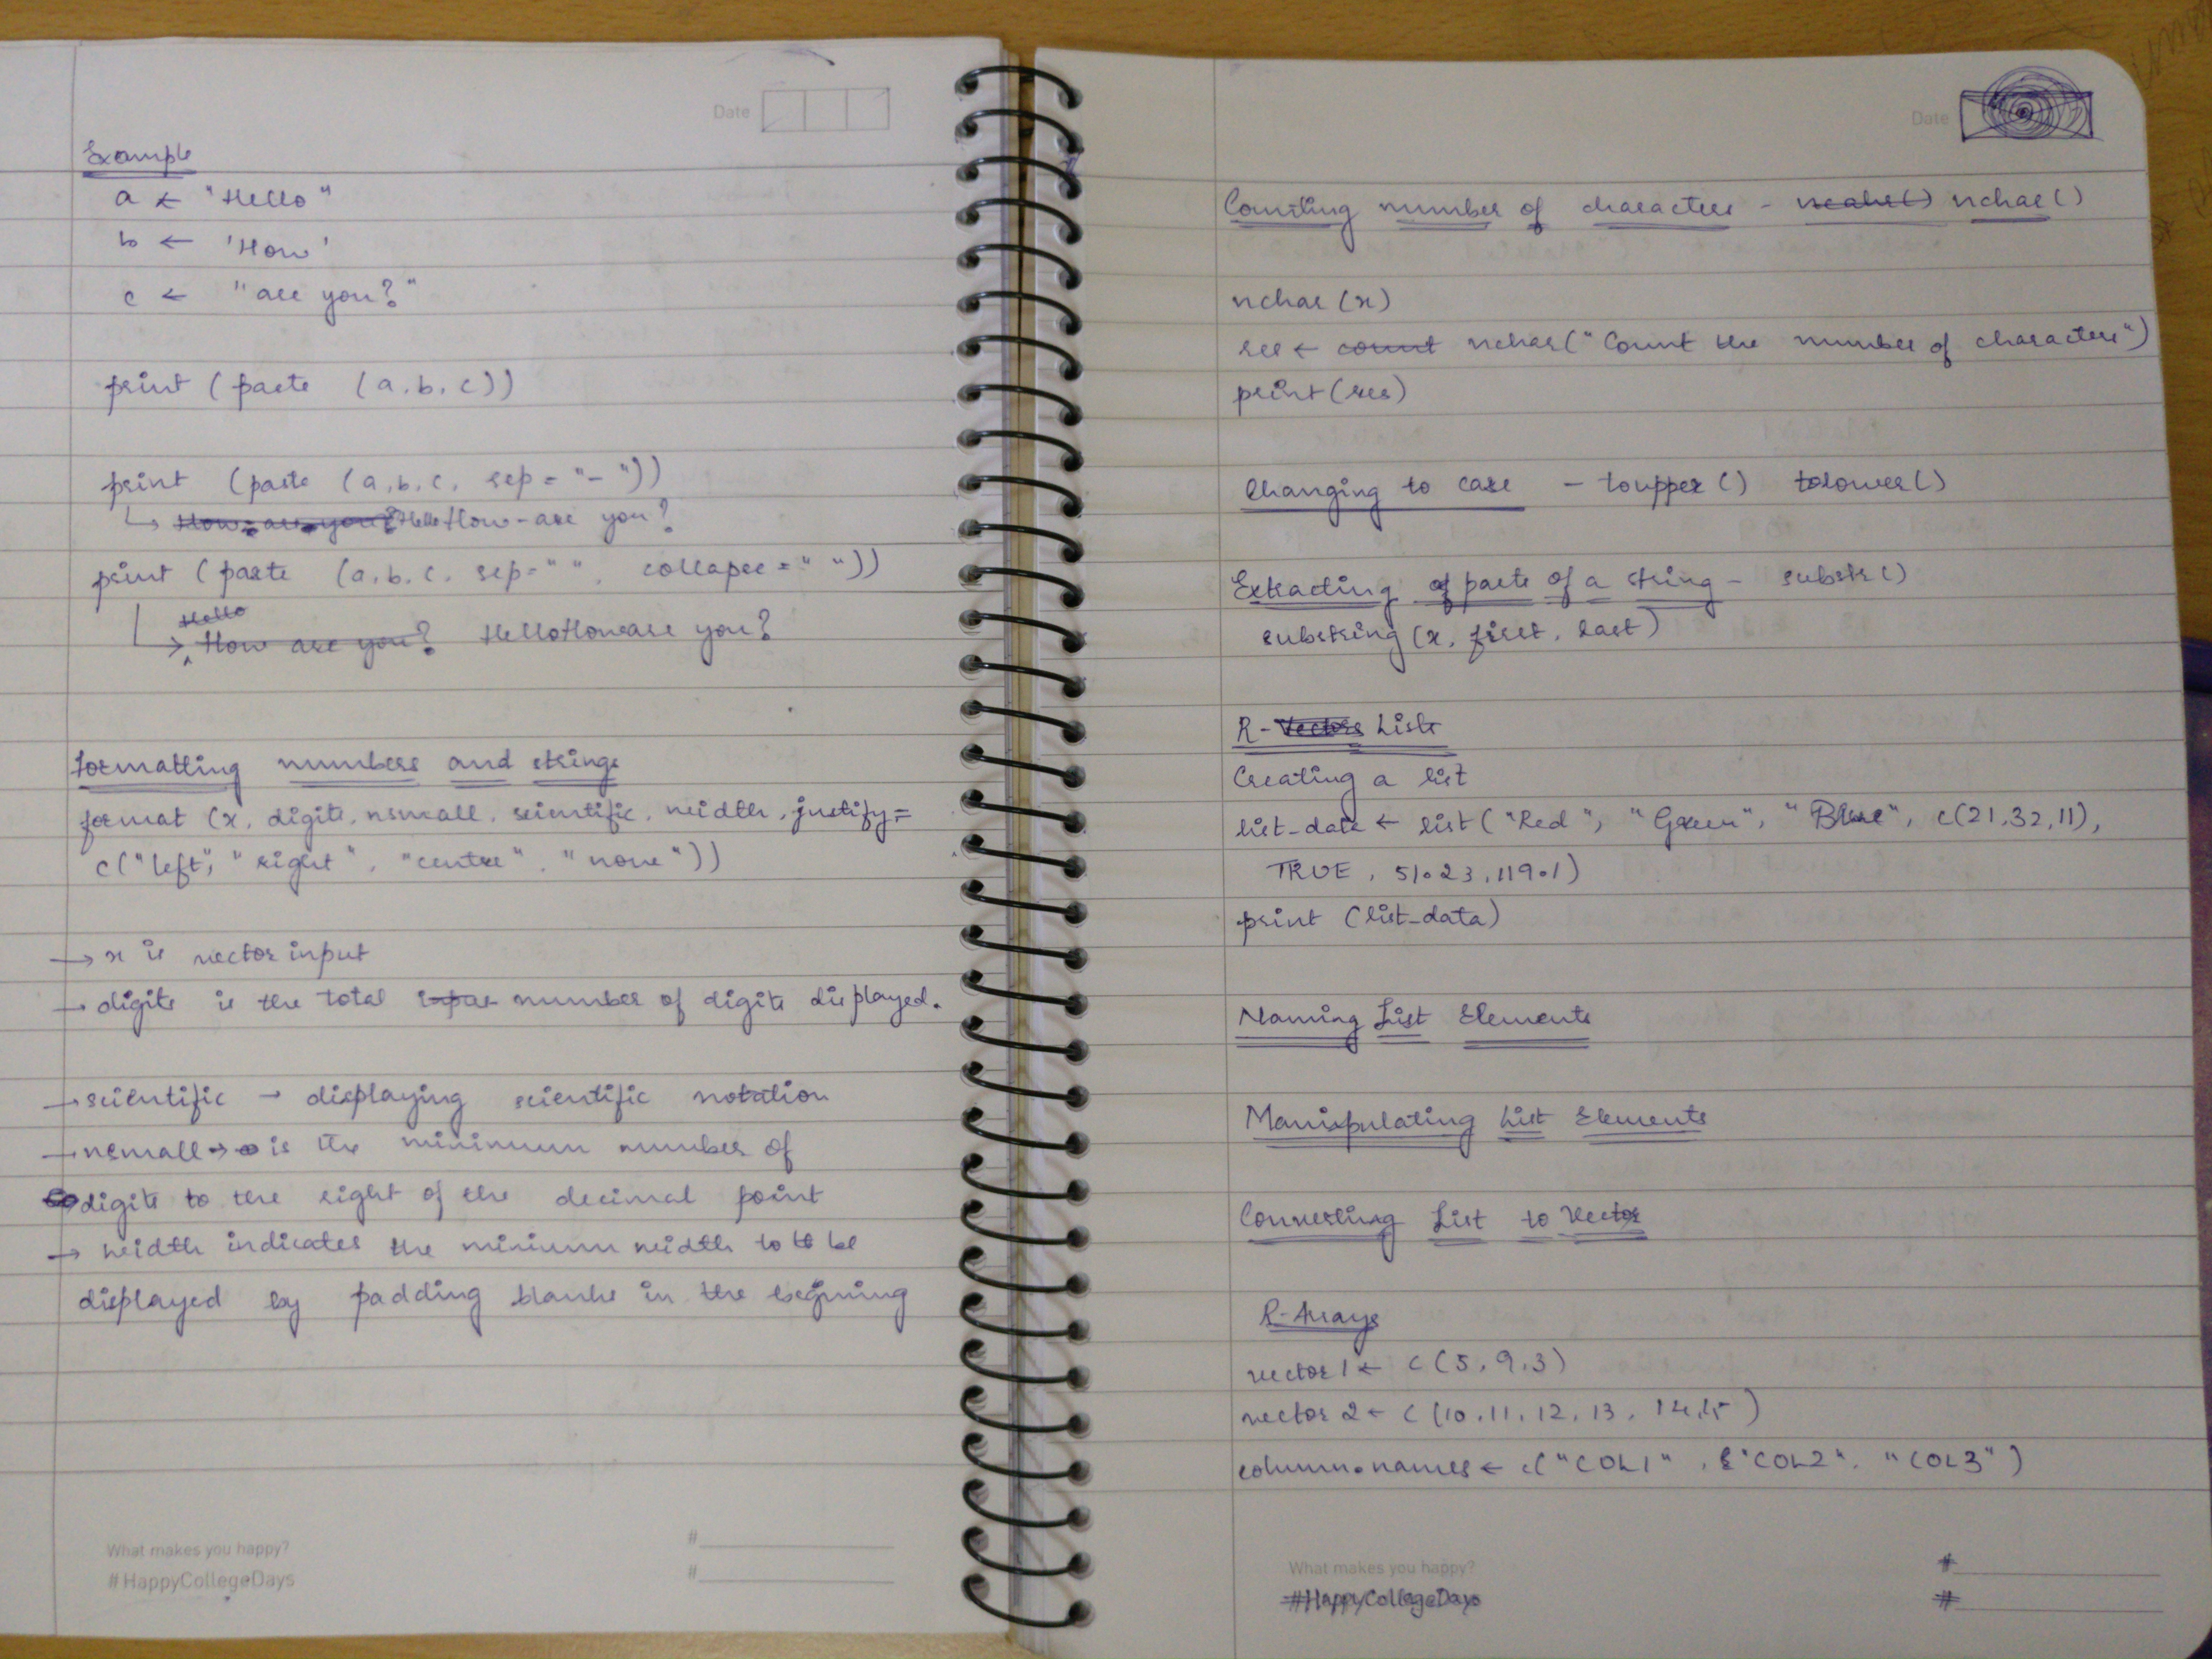 Date
Example
a ← "Hello"
b ← 'How'
c ← "are you?"
print (paste (a, b, c))
print (paste (a, b, c, sep = "-"))
↳ How-are-you? Hello How-are you?
print (paste (a, b, c, sep="", collapse = ""))
Hello
↳ How are you? HelloHoware you?
Formatting numbers and strings
format (x, digits, nsmall, scientific, width, justify =
c("left", "right", "centre", "none"))
→ x is vector input
→ digits is the total number of digits displayed.
→ scientific → displaying scientific notation
→ nsmall → is the minimum number of
digits to the right of the decimal point
→ width indicates the minimum width to be
displayed by padding blanks in the begining
What makes you happy?
#HappyCollegeDays
#
#
Date
Counting number of characters - ncahr() nchar()
nchar (x)
res ← count nchar("Count the number of characters")
print (res)
Changing to case - toupper() tolower()
Extracting of parts of a string - substr()
substring (x, first, last)
R-Vectors Lists
Creating a list
list_data ← list ("Red", "Green", "Blue", c(21,32,11),
TRUE, 51.23, 119.1)
print (list_data)
Naming List Elements
Manipulating List Elements
Converting List to Vector
R-Arrays
vector 1 ← c (5, 9, 3)
vector 2 ← c (10, 11, 12, 13, 14, 15)
column.names ← c("COL1", "COL2", "COL3")
What makes you happy?
#HappyCollegeDays
#
#